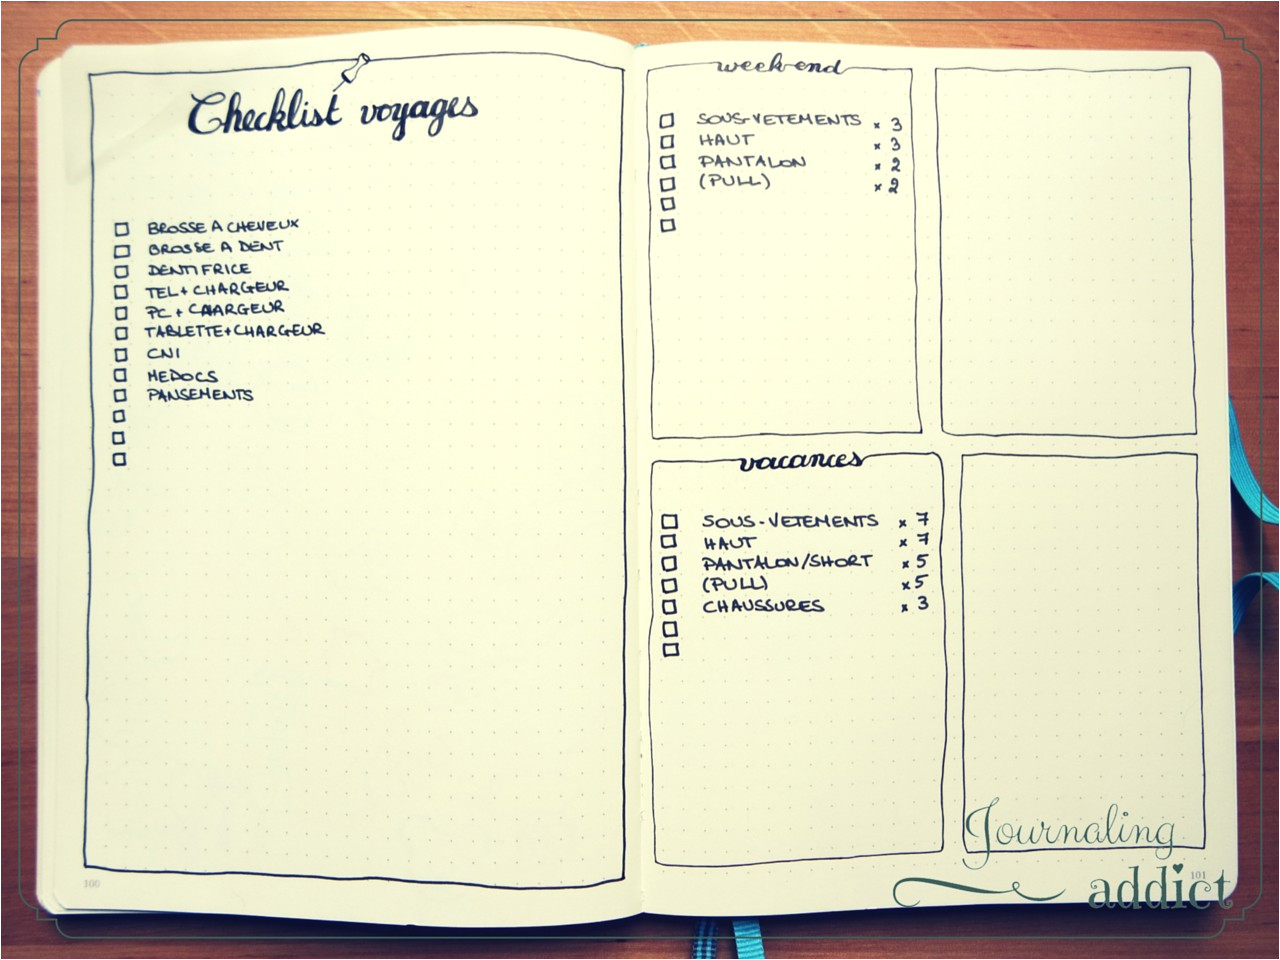 Checklist voyages
BROSSE A CHEVEUX
BROSSE A DENT
DENTIFRICE
TEL + CHARGEUR
PC + CHARGEUR
TABLETTE + CHARGEUR
CNI
MEDOCS
PANSEMENTS
100
week-end
SOUS-VETEMENTS x 3
HAUT x 3
PANTALON x 2
(PULL) x 2
vacances
SOUS-VETEMENTS x 7
HAUT x 7
PANTALON/SHORT x 5
(PULL) x 5
CHAUSSURES x 3
101
Journaling
addict